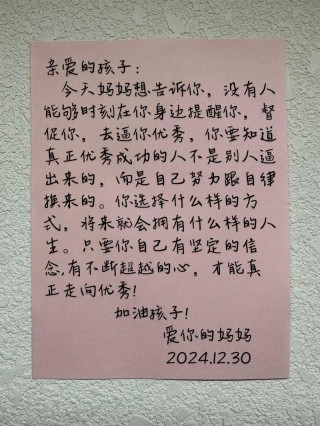 亲爱的孩子：
今天妈妈想告诉你，没有人
能够时刻在你身边提醒你，督
促你，去逼你优秀，你要知道
真正优秀成功的人不是别人逼
出来的，而是自己努力跟自律
换来的。你选择什么样的方
式，将来就会拥有什么样的人
生。只要你自己有坚定的信
念,有不断超越的心，才能真
正走向优秀！
加油孩子！
爱你的妈妈
2024.12.30